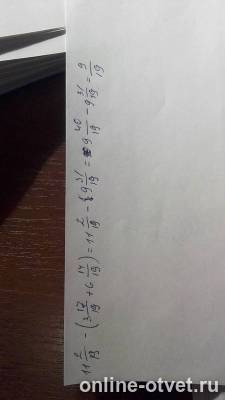 11 2/19 - (3 17/19 + 6 14/19) = 11 2/19 - 9 31/19 = 9 40/19 - 9 31/19 = 9/19
online-otvet.ru